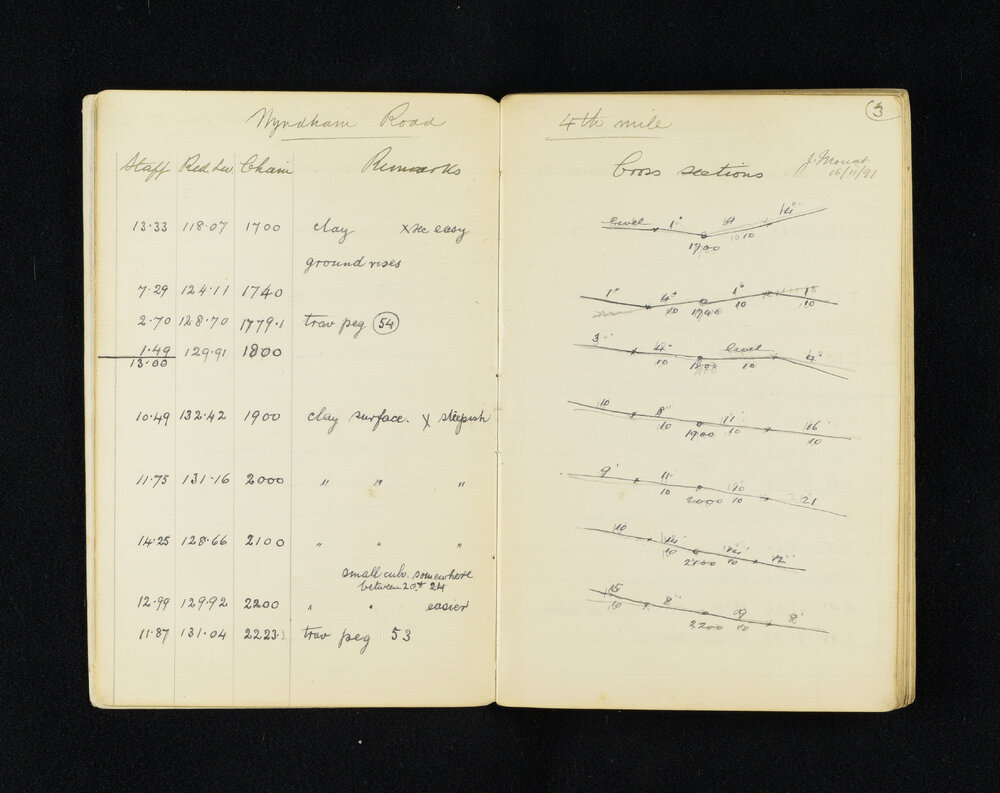 Wyndham Road
Staff Red. Lev. Chain Remarks
13.33 118.07 1700 clay x sec easy
ground rises
7.29 124.11 1740
2.70 128.70 1779.1 trav peg 54
1.49 129.91 1800
13.00
10.49 132.42 1900 clay surface. x steepish
11.75 131.16 2000 " " "
14.25 128.66 2100 " " "
small culv. somewhere
between 20 + 24
12.99 129.92 2200 " " easier
11.87 131.04 2223.2 trav peg 53
3
4th mile
Cross sections
J. Mouat
16/11/91
level 1°
1700 10 10
1° 4° 1° 1°
10 1740 10 10
3° 4° level 4°
10 1800 10
10 8° 11° 16°
10 1900 10 10
9° 11° 21
10 2000 10
10 14° 14° 12°
10 2100 10
15 8° 9 8°
10 2200 10